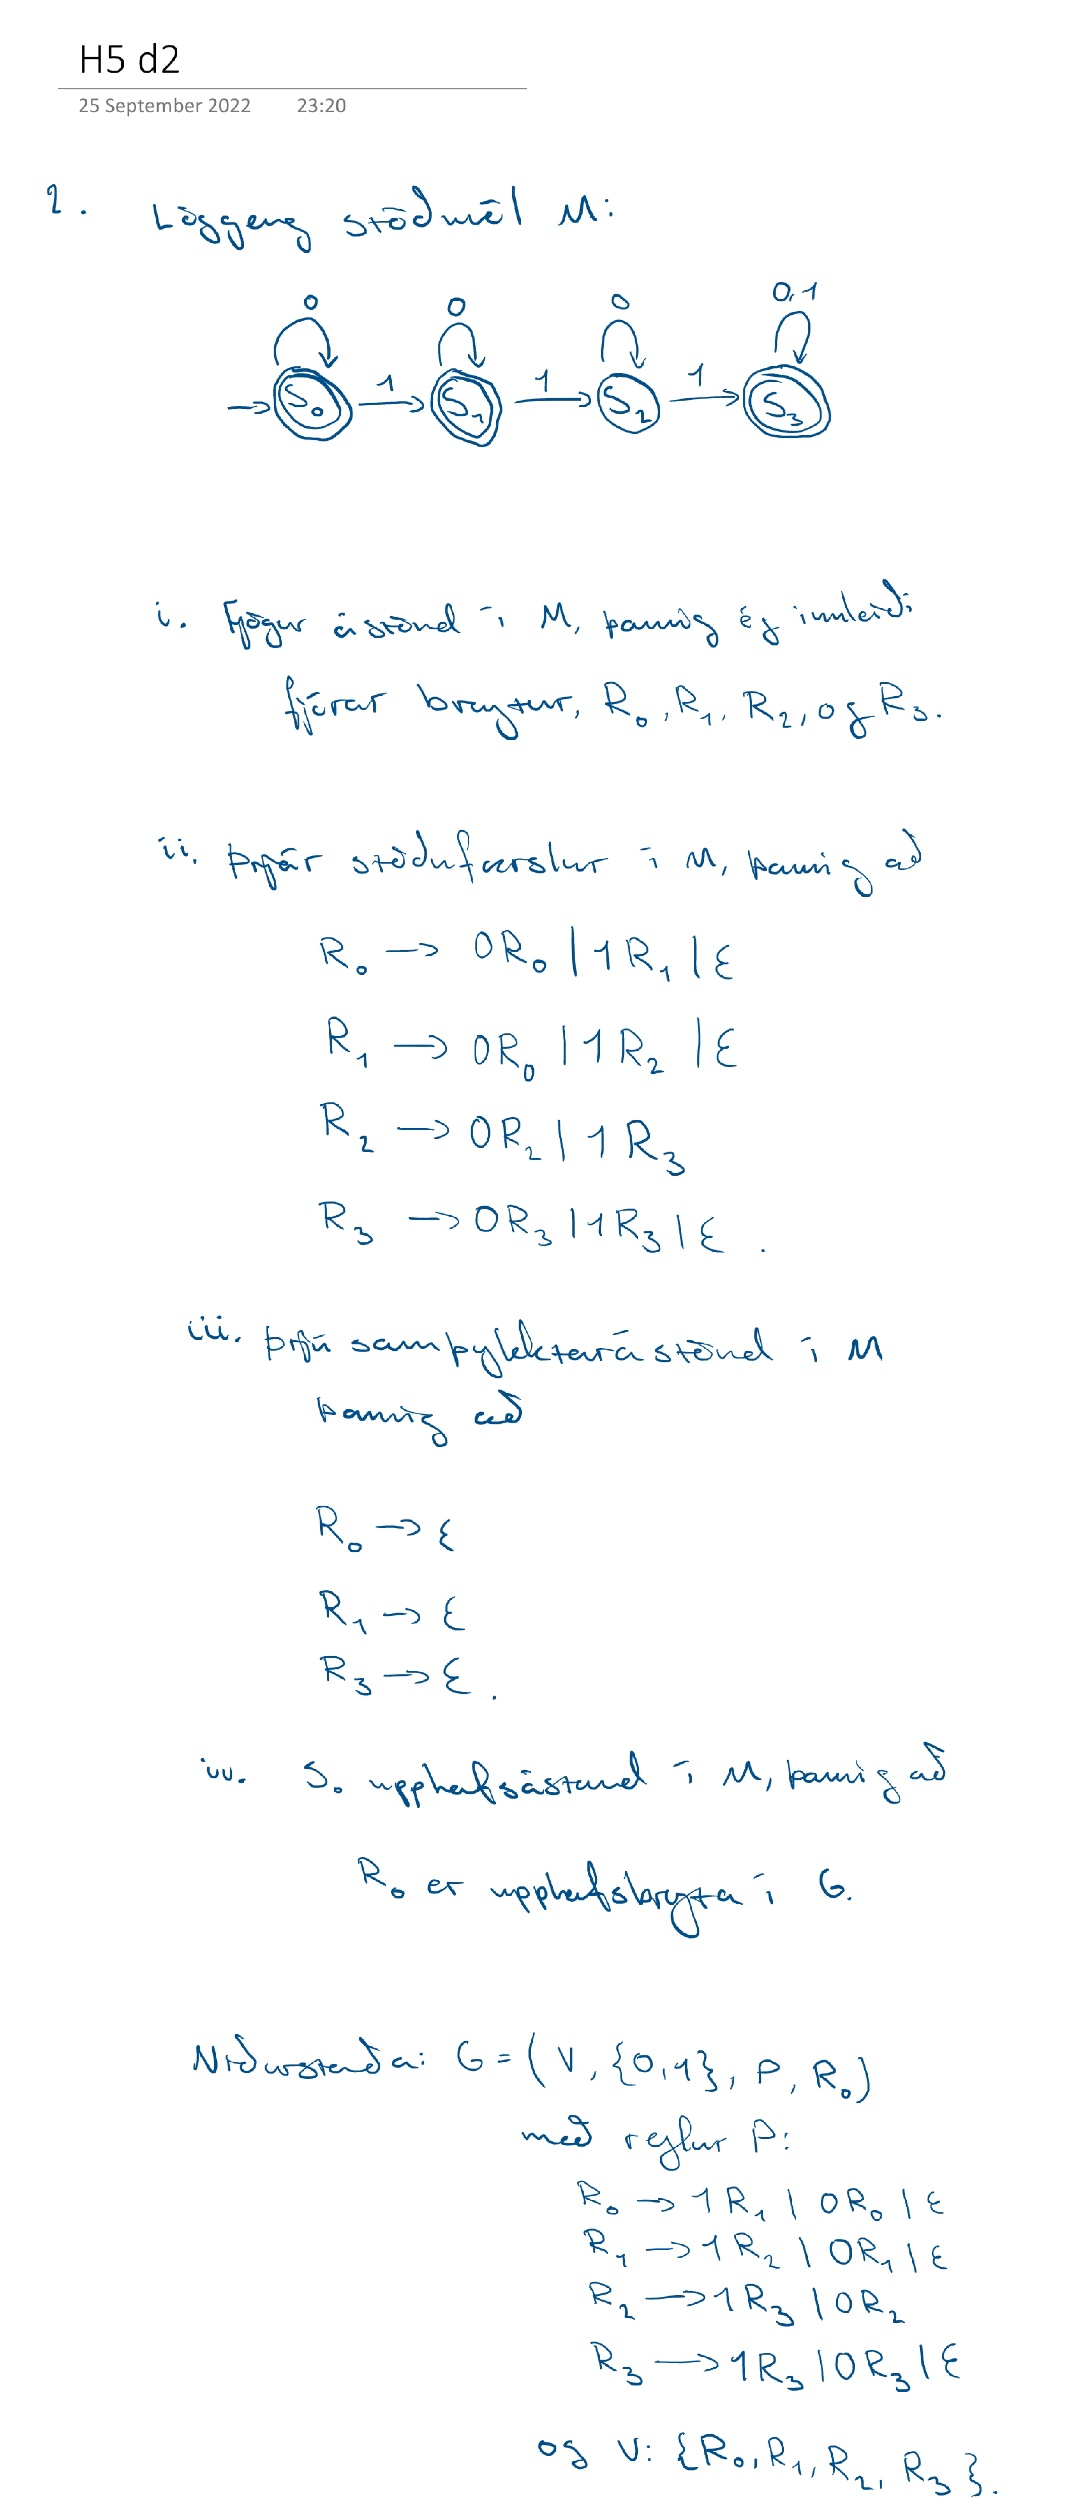 H5 d2
25 September 2022 23:20
2. Löggeng stöðuvél M:
0 0 0 0,1
S₀ 1 S₁ 1 S₂ 1 S₃
i. Fjögur ástönd í M, þannig ég innleiði
fjórar breytur, R₀, R₁, R₂, og R₃.
ii. Þrjár stöðufærslur í M, þannig að
R₀ → 0R₀ | 1R₁ | ε
R₁ → 0R₀ | 1R₂ | ε
R₂ → 0R₂ | 1R₃
R₃ → 0R₃ | 1R₃ | ε.
iii. Þrjú samþykktarástönd í M
þannig að
R₀ → ε
R₁ → ε
R₃ → ε.
iv. S₀ upphafsástand í M, þannig að
R₀ er upphafsbreyta í G.
Niðurstaða: G = (V, {0,1}, P, R₀)
með reglur P:
R₀ → 1R₁ | 0R₀ | ε
R₁ → 1R₂ | 0R₁ | ε
R₂ → 1R₃ | 0R₂
R₃ → 1R₃ | 0R₃ | ε
og V: {R₀, R₁, R₂, R₃}.